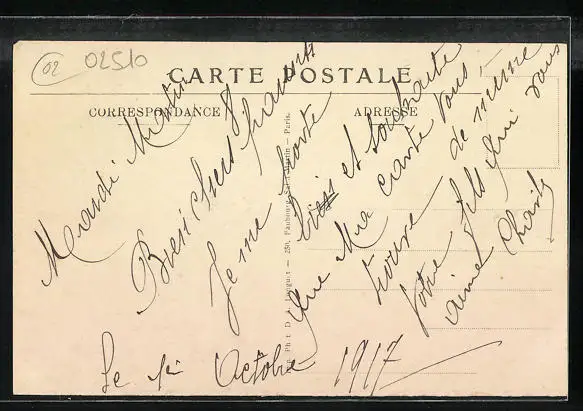 02 02510
CARTE POSTALE
CORRESPONDANCE
ADRESSE
Mardi Matin
Bien chers Parents
Je me porte
bien et souhaite
que Ma carte vous
trouve de même
Votre fils qui vous
aime Charles
Le 1er Octobre 1917
250, Faubourg St-Martin — Paris.